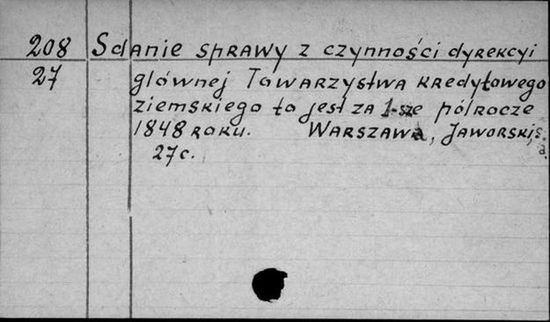 208 Sdanie sprawy z czynności dyrekcyi
27 głównej Towarzystwa kredytowego
ziemskiego to jest za 1-sze półrocze
1848 roku. Warszawa, Jaworski, s.
a.
27c.